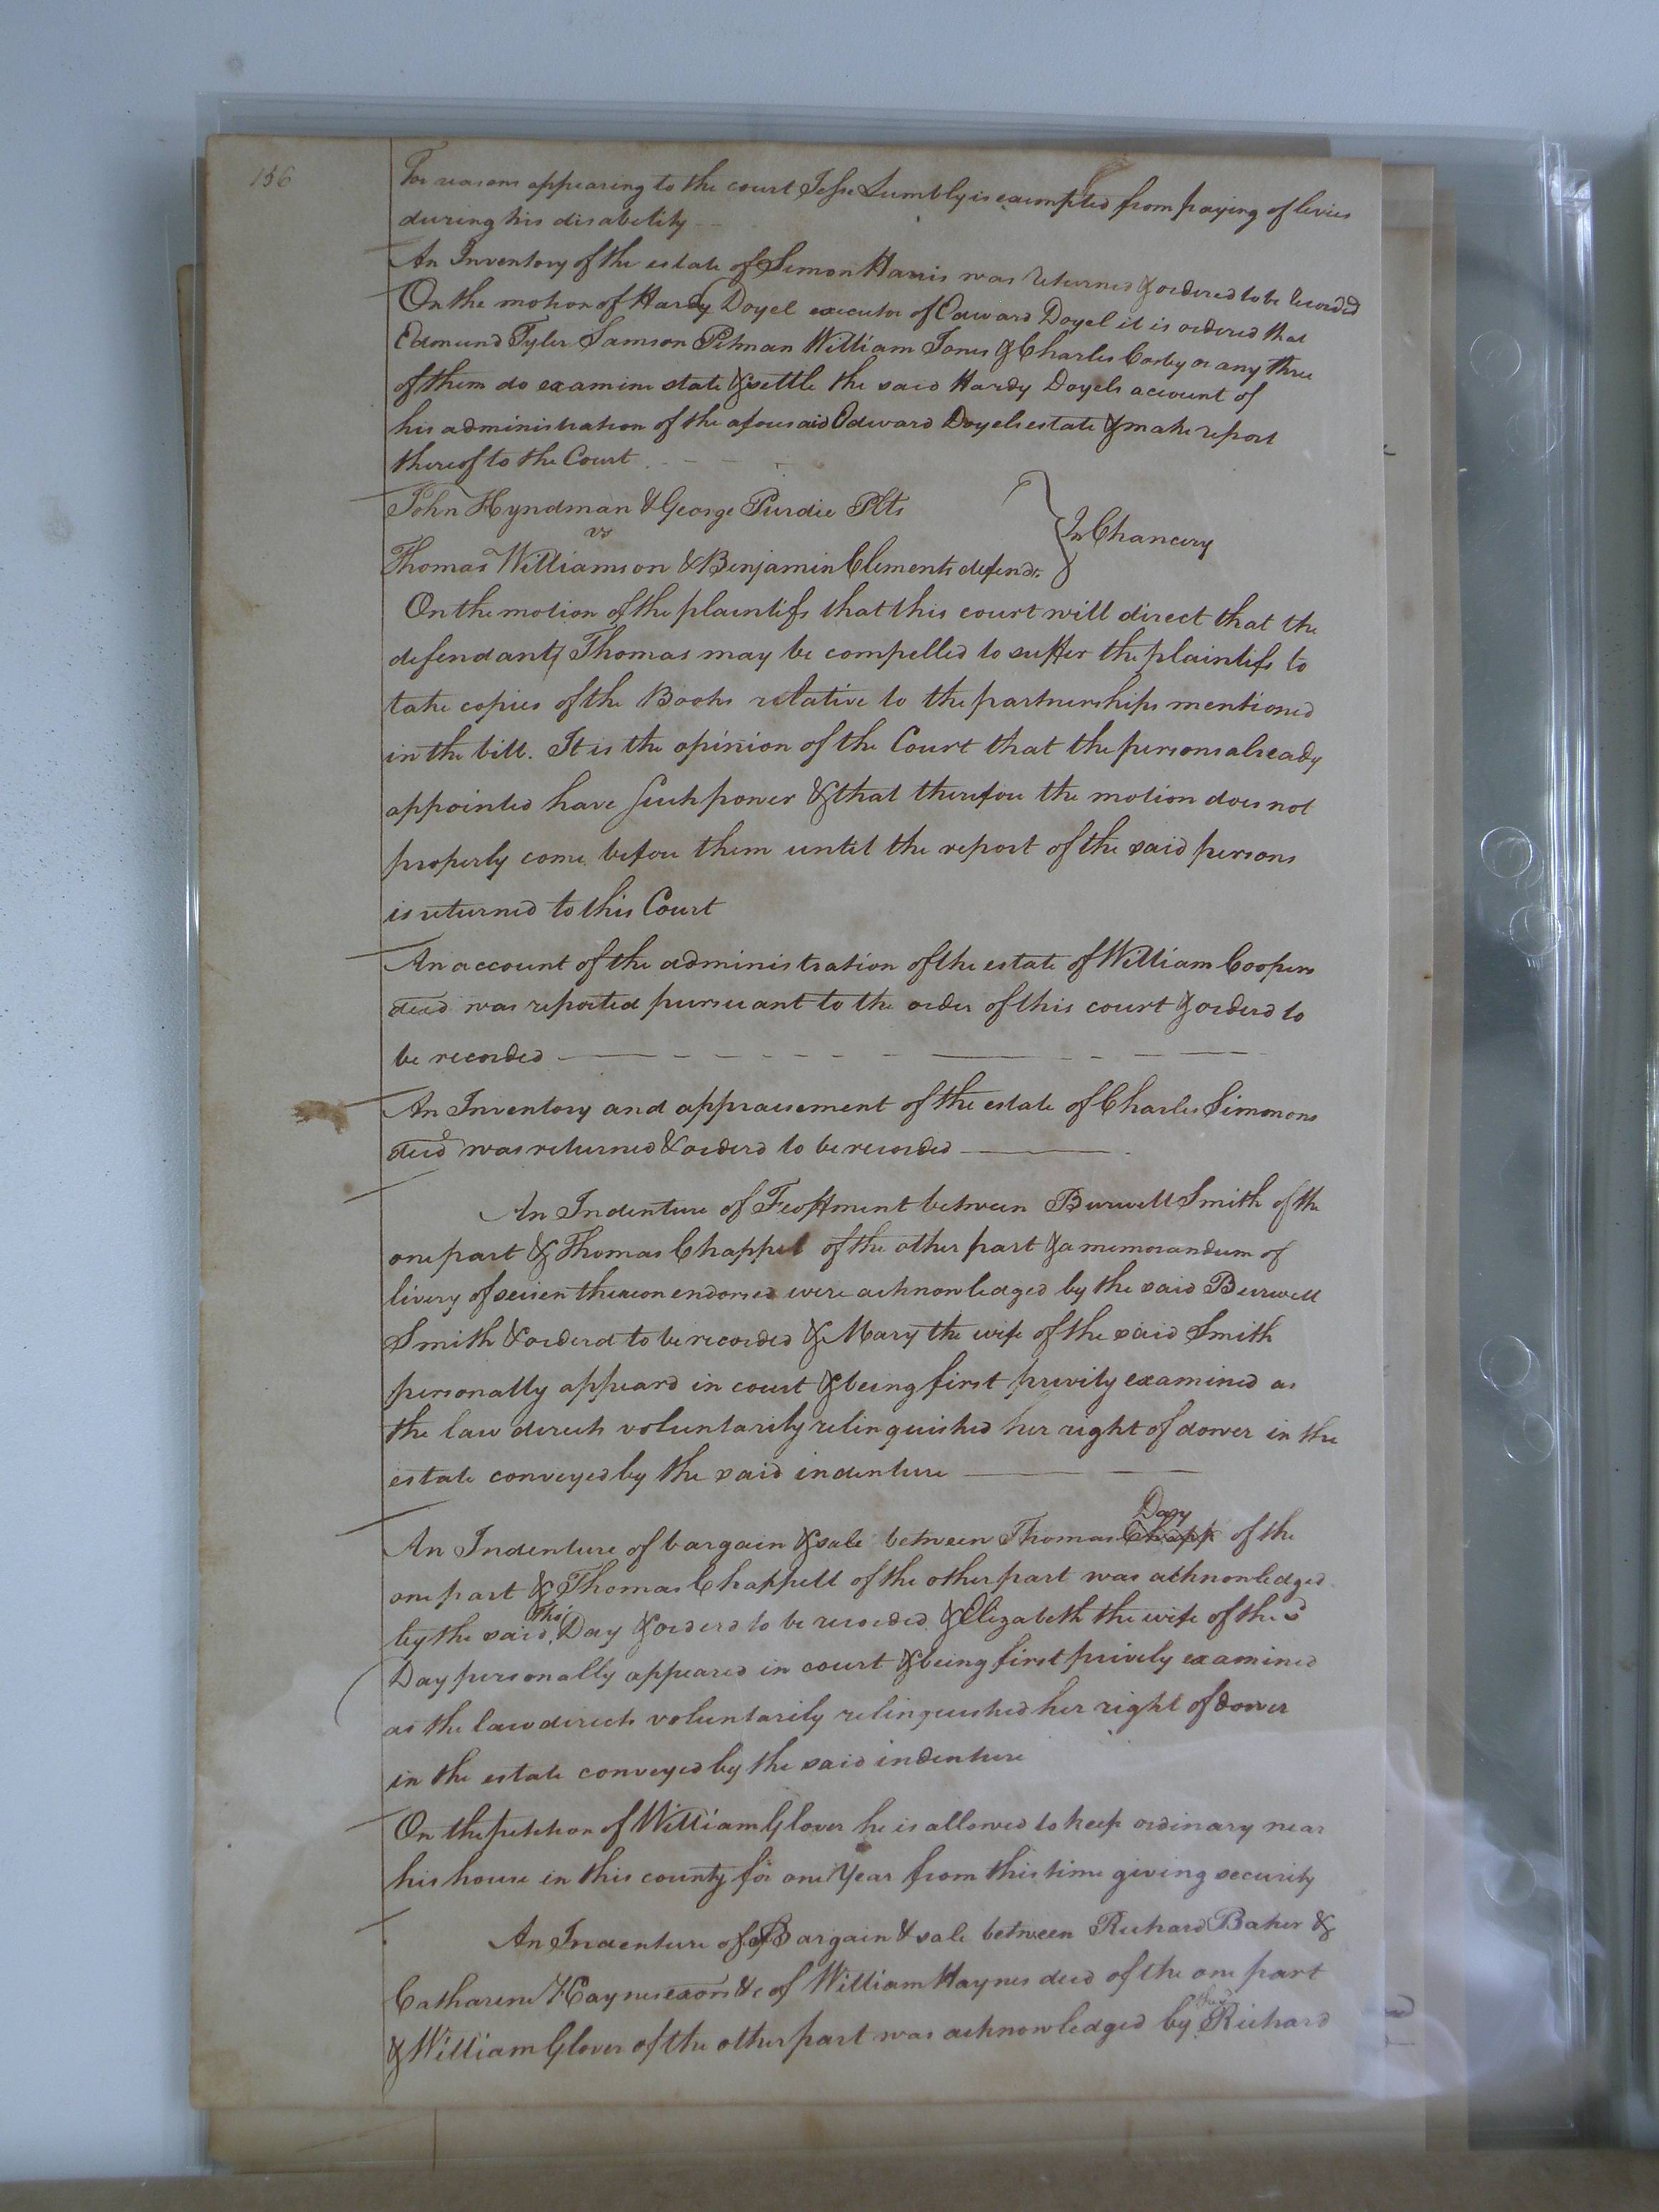 156
For reasons appearing to the court Jesse Lumbly is exempted from paying of levies
during his disability
An Inventory of the estate of Simon Harris was returned & ordered to be recorded
On the motion of Hardy Doyel executor of Edward Doyel it is ordered that
Edmund Tyler Samson Pitman William Jones & Charles Cosby or any three
of them do examine state & settle the said Hardy Doyels account of
his administration of the aforesaid Edward Doyels estate & make report
thereof to the Court
John Hyndman & George Purdie Plts
vs
In Chancery
Thomas Williamson & Benjamin Clements defend.
On the motion of the plaintifs that this court will direct that the
defendant Thomas may be compelled to suffer the plaintifs to
take copies of the Books relative to the partnerships mentioned
in the bill. It is the opinion of the Court that the persons already
appointed have such power & that therefore the motion does not
properly come before them until the report of the said persons
is returned to this Court
An account of the administration of the estate of William Coopers
decd was reported pursuant to the order of this court & orderd to
be recorded
An Inventory and appraisement of the estate of Charles Simmons
decd was returned & orderd to be recorded
An Indenture of Feoffment between Burwell Smith of the
one part & Thomas Chappel of the other part & a memorandum of
livery of seisen thereon endorsed were acknowledged by the said Burwell
Smith & orderd to be recorded & Mary the wife of the said Smith
personally appeard in court & being first privily examined as
the law directs voluntarily relinquished her right of dower in the
estate conveyed by the said indenture
Day
An Indenture of bargain & sale between Thomas Chapp of the
one part & Thomas Chappell of the other part was acknowledged
by the said Tho. Day & orderd to be recorded & Elizabeth the wife of the sd
Day personally appeared in court & being first privily examined
as the law directs voluntarily relinquished her right of dower
in the estate conveyed by the said indenture
On the petition of William Glover he is allowed to keep ordinary near
his house in this county for one Year from this time giving security
An Indenture of of Bargain & sale between Richard Baker &
Catharine Haynes exors &c of William Haynes decd of the one part
& William Glover of the other part was acknowledged by the sd Richard